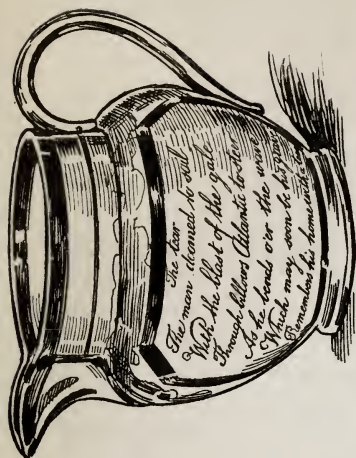 The tear
The man doomed to sail
With the blast of the gale
Through billows Atlantic to steer
As he bends oer the wave
Which may soon be his grave
Remembers his home with a